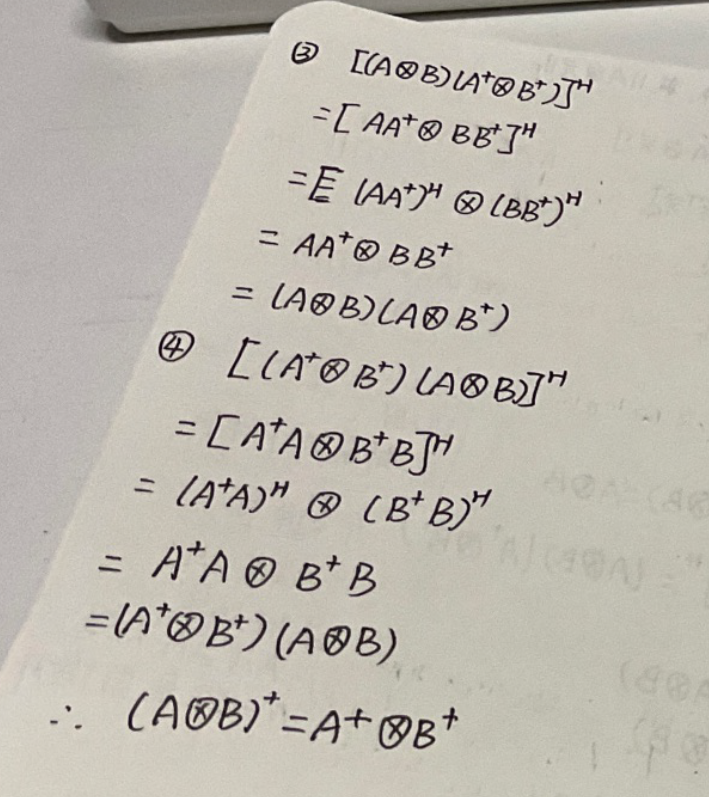 ③ [(A⊗B)(A⁺⊗B⁺)]ᴴ
=[AA⁺⊗BB⁺]ᴴ
=E (AA⁺)ᴴ⊗(BB⁺)ᴴ
= AA⁺⊗BB⁺
= (A⊗B)(A⊗B⁺)
④ [(A⁺⊗B⁺)(A⊗B)]ᴴ
=[A⁺A⊗B⁺B]ᴴ
= (A⁺A)ᴴ ⊗ (B⁺B)ᴴ
= A⁺A⊗B⁺B
=(A⁺⊗B⁺)(A⊗B)
∴ (A⊗B)⁺=A⁺⊗B⁺